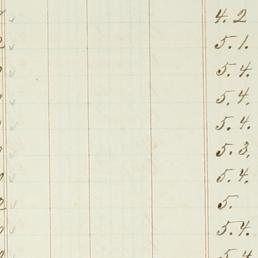 4. 2
5. 1.
5. 4.
5. 4.
5. 4.
5. 3.
5. 4.
5.
5. 4.
5. 4